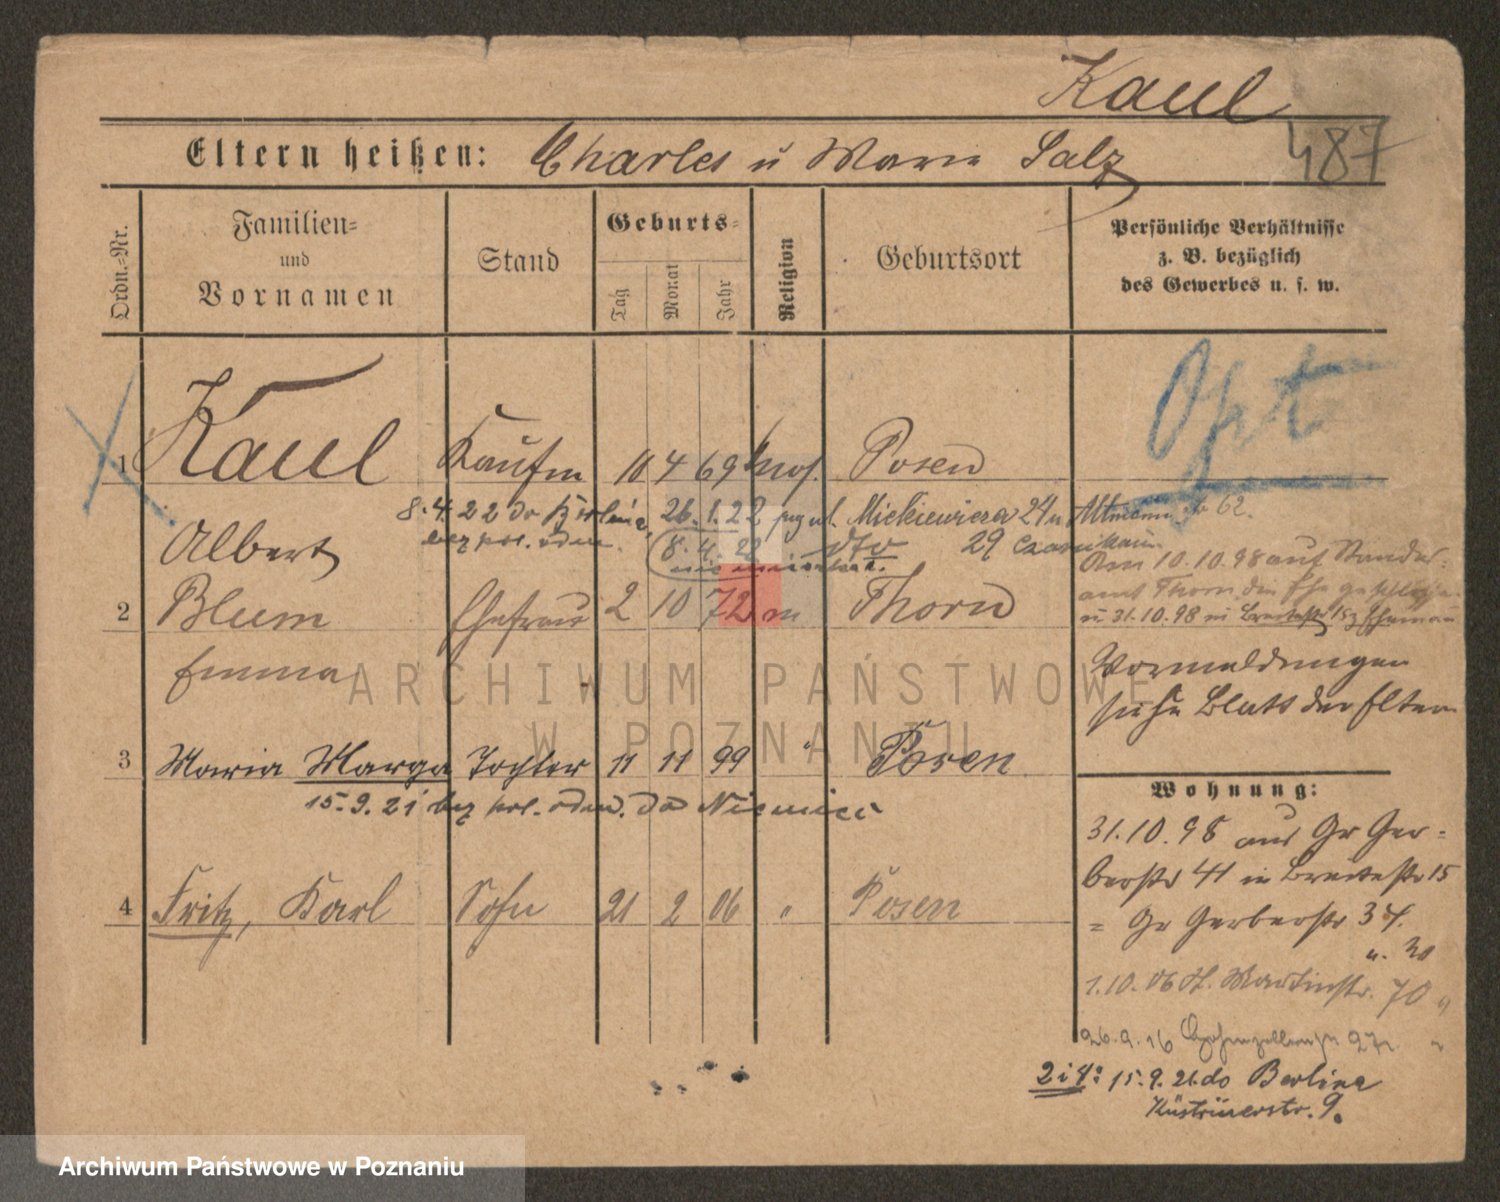 Kaul
487
Eltern heißen: Charles u Marie Salz
Ordn.-Nr.
Familien- und Vornamen
Stand
Geburts-
Tag Monat Jahr
Religion
Geburtsort
Persönliche Verhältnisse
z. B. bezüglich
des Gewerbes u. s. w.
Opt
1 Kaul Kaufm 10 4 69 mos. Posen
8.4.22 do Berlina 26.1.22 ul. Mickiewicza 24
bez pol. odm. 8.4.22 dto 29
Albert
Am 10.10.98 auf Standes-
amt Thorn die Ehe geschlossen
2 Blum Ehefrau 2 10 72 m Thorn
u 31.10.98 in Breitestr 15
Emma
Vormeldungen
siehe Blatt der Eltern
3 Maria Marga Tochter 11 11 99 " Posen
15.9.21 bez pol. odm. do Niemiec
Wohnung:
31.10.98 aus Gr Ger-
berstr 41 in Breitestr 15
4 Fritz, Karl Sohn 21 2 06 " Posen
= Gr Gerberstr 37.
1.10.06 St. Martinstr. 70
26.9.16 Hohenzollernstr 27
2 i 4: 15.9.21 do Berlina
Küstrinerstr. 9.
ARCHIWUM PAŃSTWOWE
W POZNANIU
Archiwum Państwowe w Poznaniu